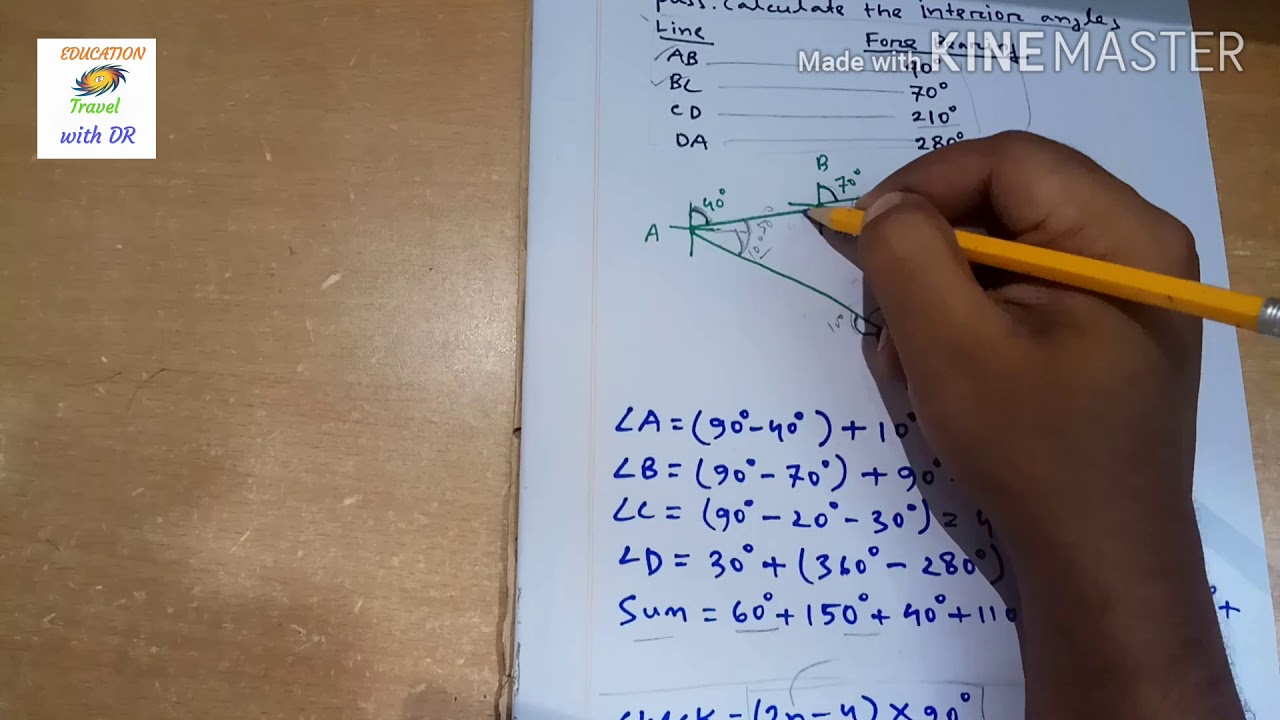 EDUCATION
Travel
with DR
Made with KINEMASTER
pass. Calculate the interior angles
Line Fore
AB 40°
BC 70°
CD 210°
DA 280°
B
70°
40°
A
50°
10°
∠A = (90° - 40°) + 10°
∠B = (90° - 70°) + 90°
∠C = (90° - 20° - 30°) = 4
∠D = 30° + (360° - 280°)
Sum = 60° + 150° + 40° + 110
+
check = (2n - 4) × 90°